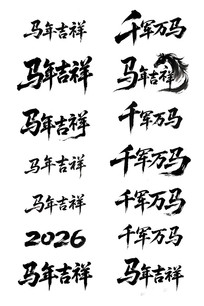 马年吉祥
千军万马
马年吉祥
马年吉祥
马年吉祥
千军万马
马年吉祥
千军万马
马年吉祥
千军万马
2026
千军万马
马年吉祥
马年吉祥